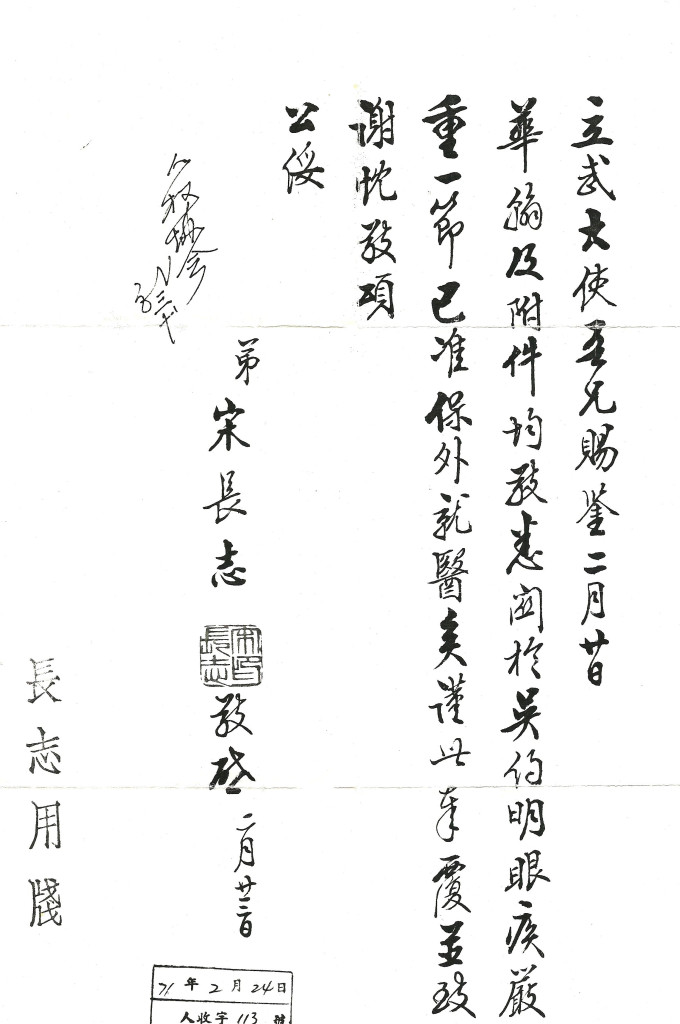 立武大使吾兄賜鑒二月廿日
華翰及附件均敬悉關於吳伯明眼疾嚴
重一節已准保外就醫矣謹此奉覆並致
謝忱敬頌
公綏
弟 宋長志 敬啟 二月廿三日
宋長志印
人權協會
長志用牋
71年2月24日
人收字113號